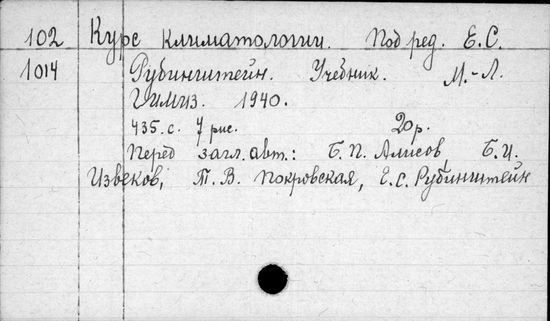 102 Курс климатологии. Под ред. Е.С.
1014 Рубинштейн. Учебник. М.-Л.
Гимиз. 1940.
435.с. 7 рис. 20р.
Перед загл. авт.: Б.П. Алисов, Б.И.
Извеков, Т.В. Покровская, Е.С. Рубинштейн